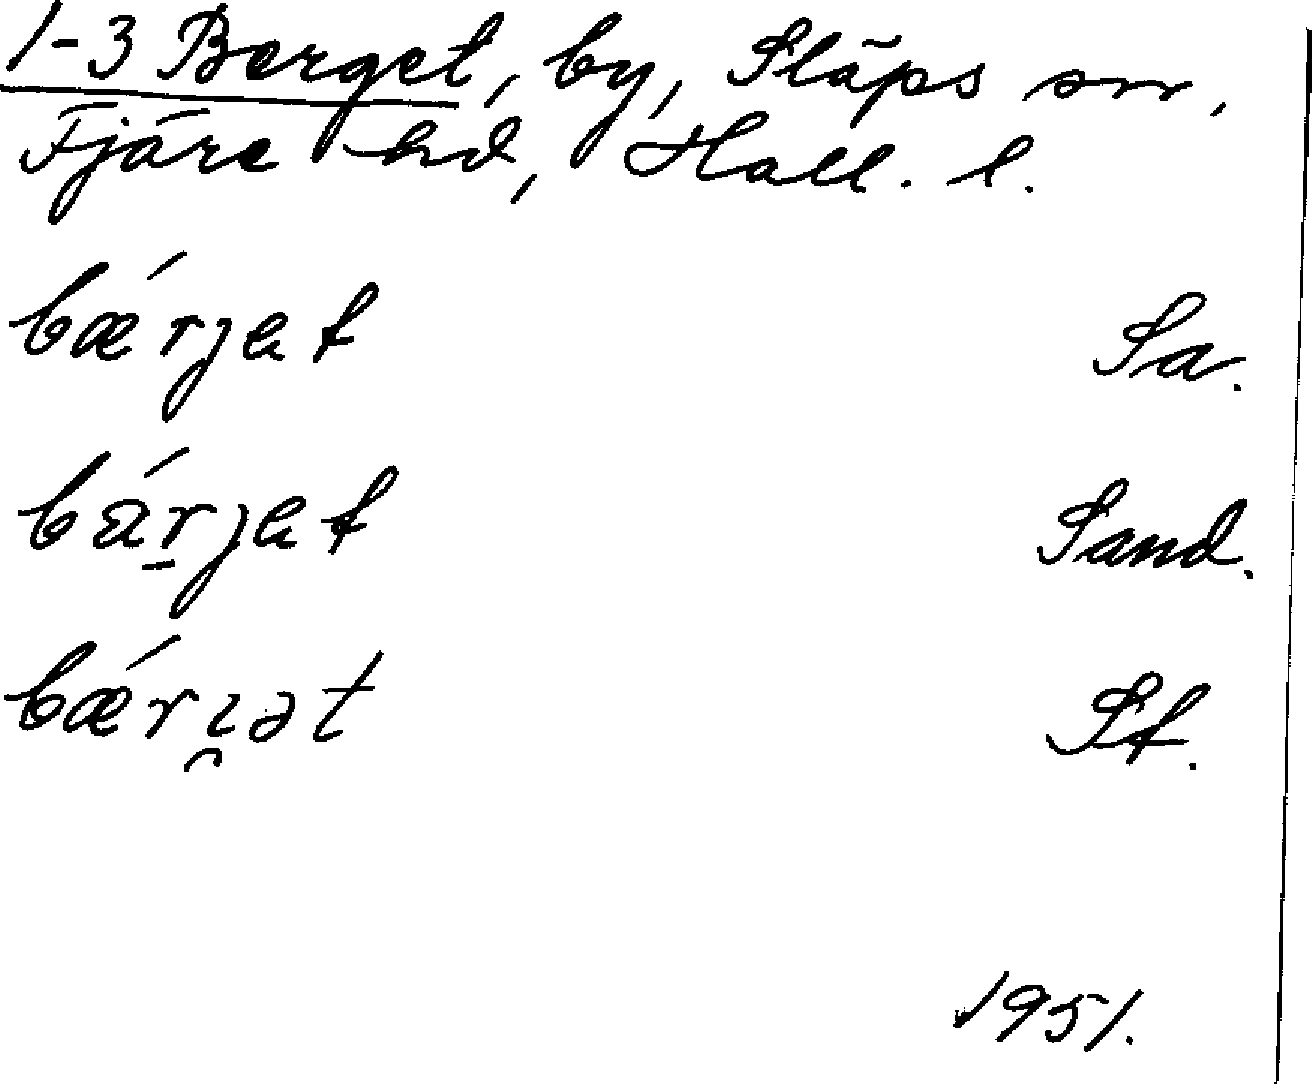 1-3 Berget, by, Släps sn,
Fjäre hd, Hall. l.
bǽrjet Sa.
bä́ṟjet Sand.
bǽrı̯ət Sf.
1951.